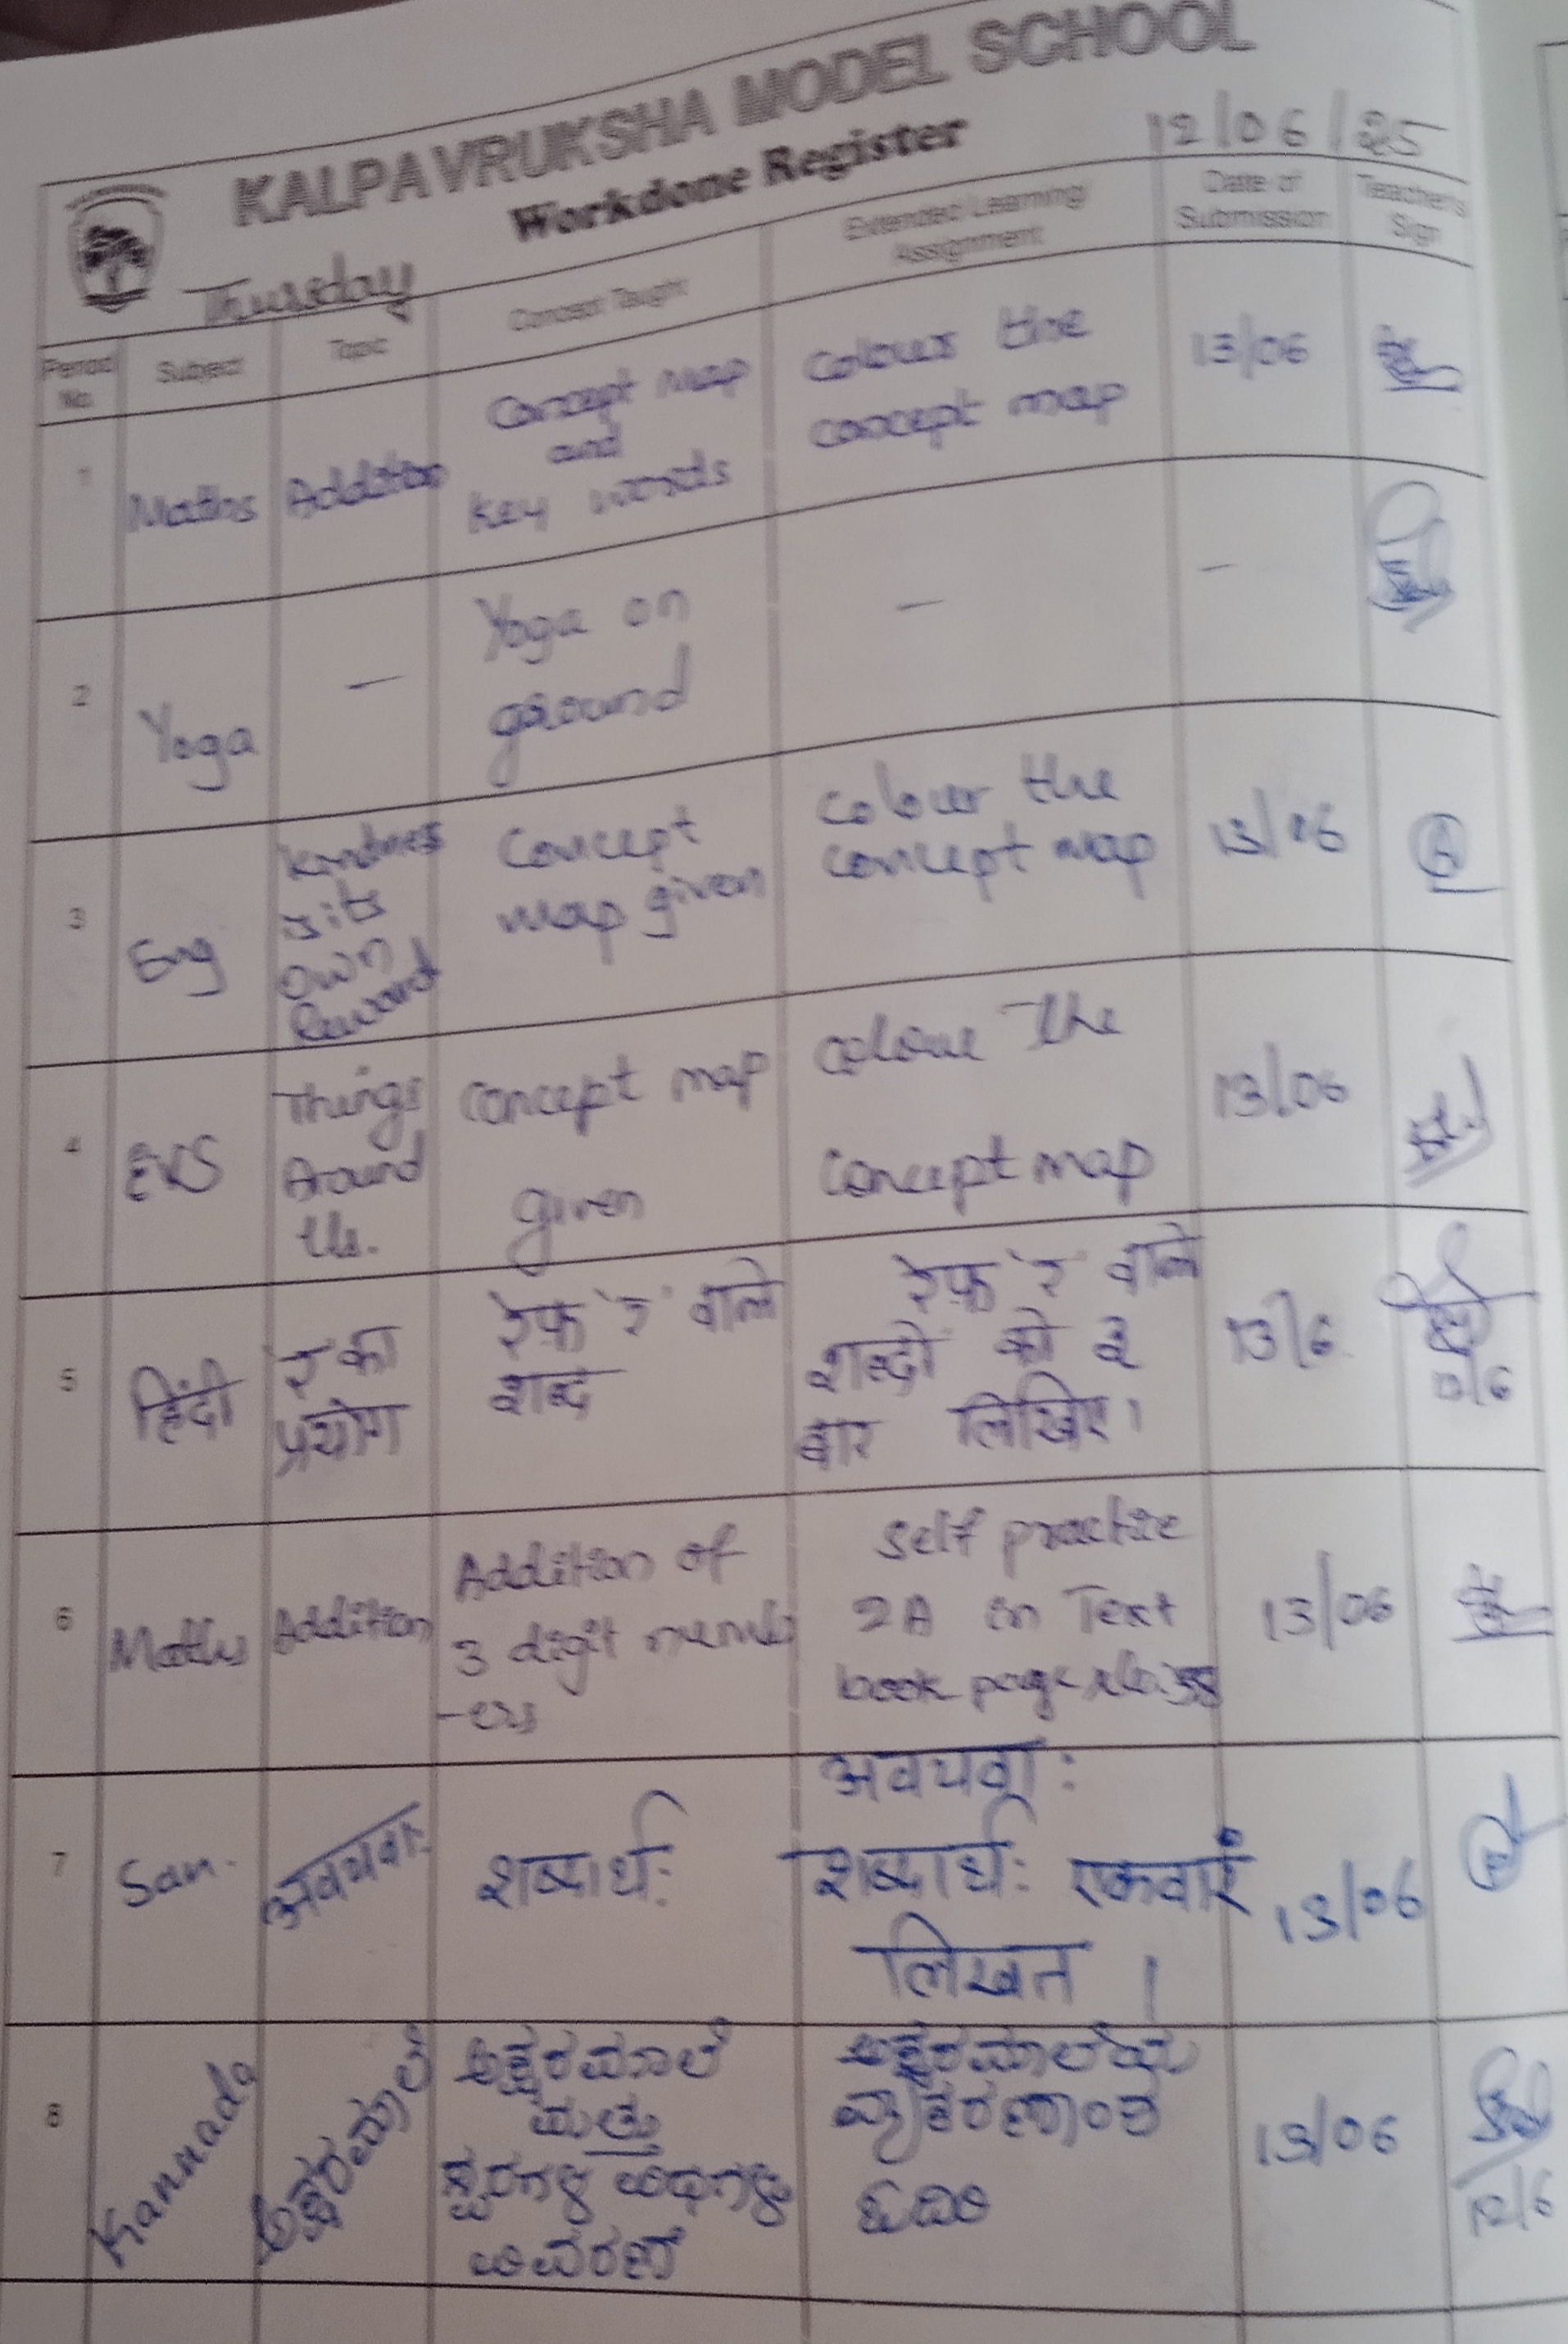 KALPAVRUKSHA MODEL SCHOOL
Workdone Register
12/06/25
Thursday
Period No. Subject Topic Concept Taught Extended Learning/ Assignment Date of Submission Teacher's Sign
1 Maths Addition
Concept Map
and
Key words
Colour the
concept map
13/06
2 Yoga —
Yoga on
ground
— —
3 Eng
Kindness
is its
own
Reward
Concept
map given
colour the
concept map
13/06
4 EVS
Things
Around
Us.
concept map
given
colour the
concept map
13/06
5 हिंदी
र का
प्रयोग
रेफ 'र' वाले
शब्द
रेफ 'र' वाले
शब्दों को 3
बार लिखिए।
13/6
12/6
6 Maths Addition
Addition of
3 digit numb
-ers
Self practice
2A in Text
book page
13/06
7 San. अवयवाः
शब्दार्थः
अवयवाः
शब्दार्थः एकवारं
लिखत ।
13/06
8 Kannada ಅಕ್ಷರಮಾಲೆ
ಅಕ್ಷರಮಾಲೆ
ಮತ್ತು
ಸ್ವರಗಳ ವಿಧಗಳ
ವಿವರಣೆ
ಅಕ್ಷರಮಾಲೆಯ
ವ್ಯಾಕರಣಾಂಶ
ಓದಿರಿ
13/06
12/6